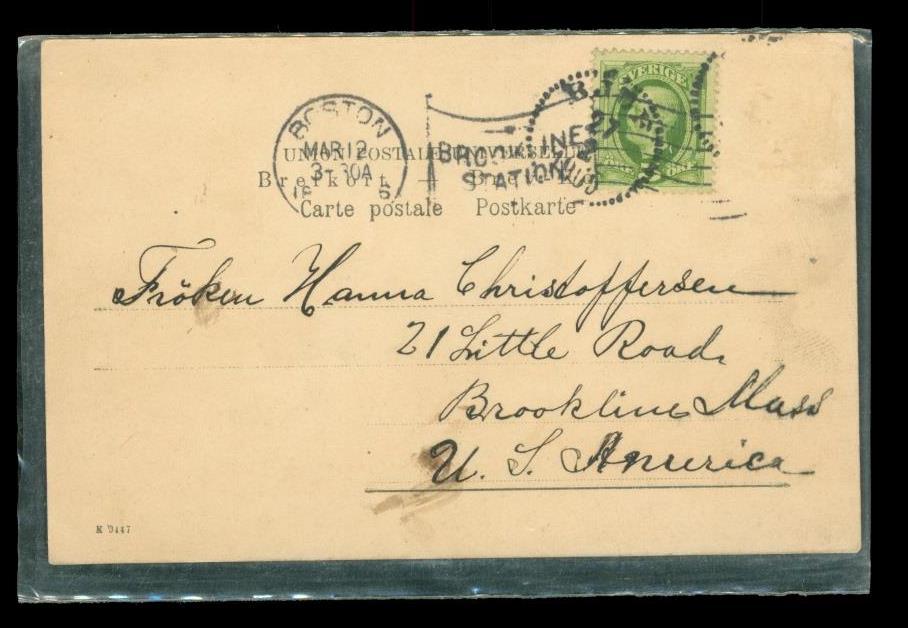 SVERIGE
BOSTON
MAR 12
3-30A
BROOKLINE
STATION
27
UNION POSTALE UNIVERSELLE
Brefkort — Brevkort
Carte postale Postkarte
Fröken Hanna Christoffersen
21 Little Road.
Brookline Mass
U. S. America